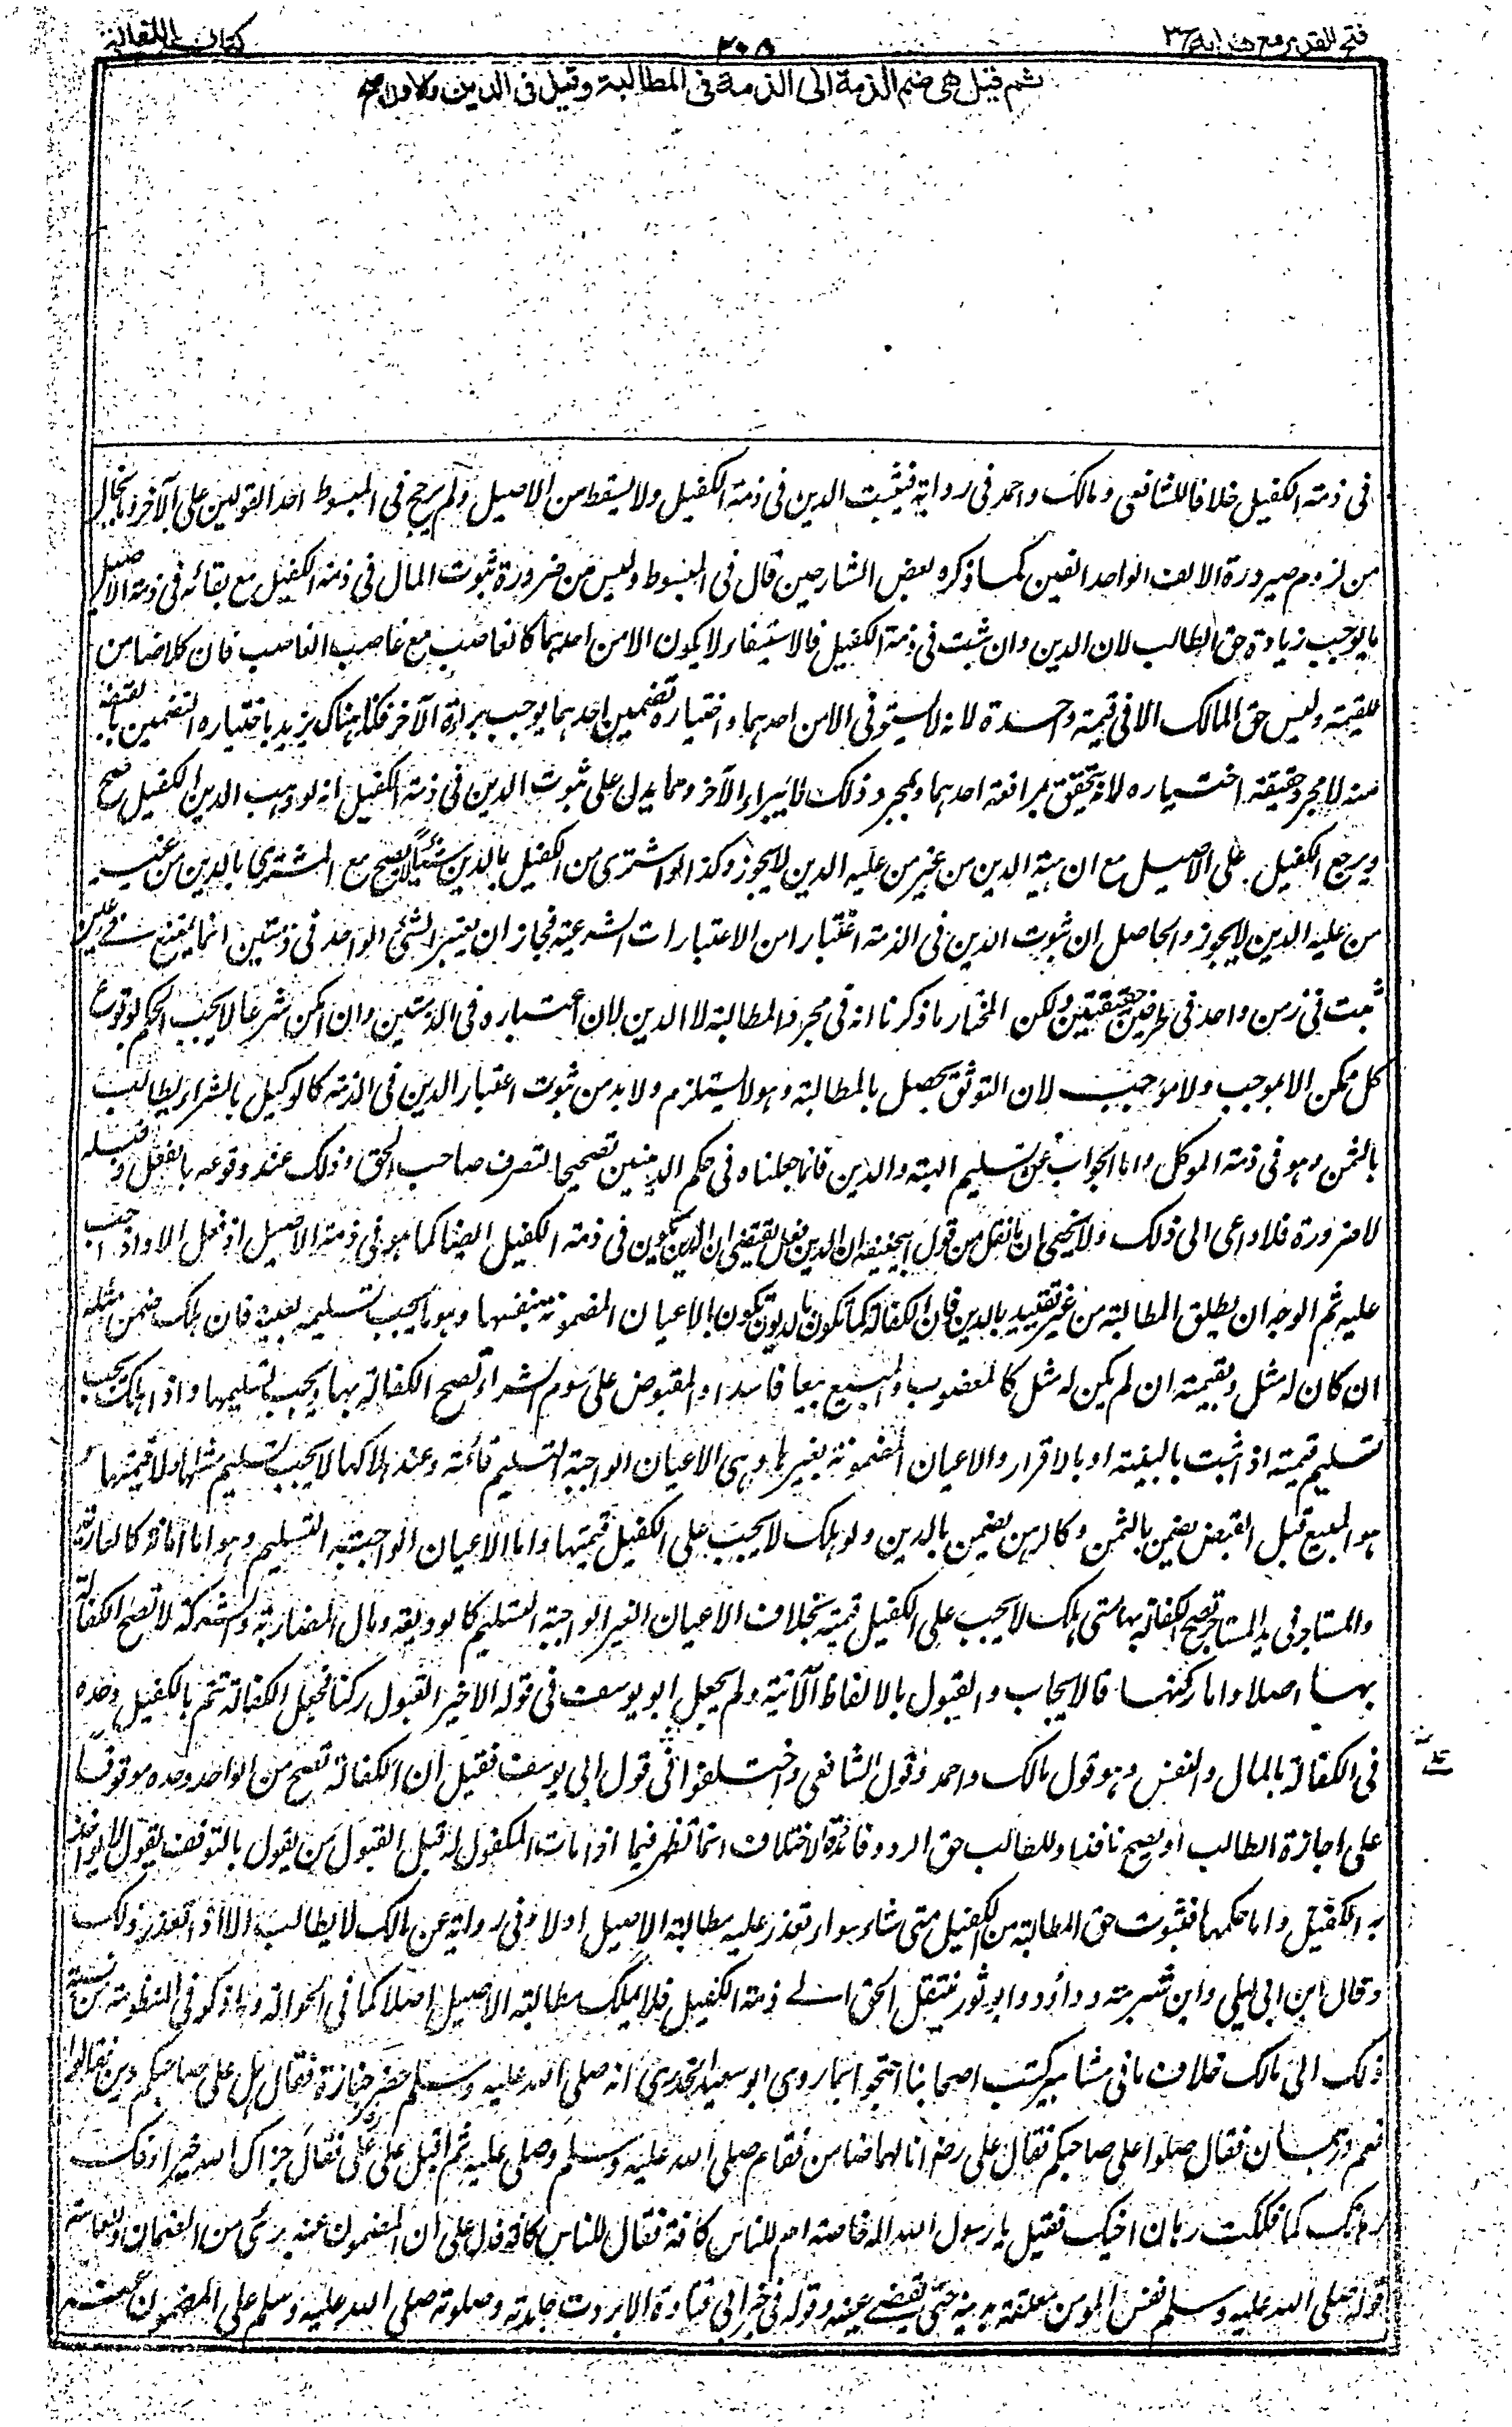 فتح القدير مع هدايه ج٣
٢٠٨
كتاب الكفالة
ثم قيل هى ضم الذمة الى الذمة فى المطالبة وقيل فى الدين والاول اصح
فى ذمة الكفيل خلافا للشافعى ومالك واحمد فى رواية فيثبت الدين فى ذمة الكفيل ولا يسقط من الاصيل ولم يرجح فى المبسوط احد القولين على الآخر وما يخال
من لزوم صيرورة الالف الواحد الفين كما ذكره بعض الشارحين قال فى المبسوط وليس من ضرورة ثبوت المال فى ذمة الكفيل مع بقائه فى ذمة الاصيل
ما يوجب زيادة حق الطالب لان الدين وان ثبت فى ذمة الكفيل فالاستيفاء لا يكون الا من احدهما كالغاصب مع غاصب الغاصب فان كلا ضامن
للقيمة وليس حق المالك الا فى قيمة واحدة لانه لا يستوفى الا من احدهما واختياره تضمين احدهما يوجب براءة الآخر فكذا هناك يريد باختياره التضمين بالقبضة
منه لا مجرد حقيقة اختياره لانه يتحقق بمرافعة احدهما وبمجرد ذلك لا يبراء الآخر ومما يدل على ثبوت الدين فى ذمة الكفيل انه لو وهب الدين للكفيل صح
ويرجع الكفيل على الاصيل مع ان هبة الدين من غير من عليه الدين لا يجوز وكذا لو اشترى من الكفيل بالدين شيئا يصح مع المشترى بالدين من غير
من عليه الدين لا يجوز والحاصل ان ثبوت الدين فى الذمة اعتبار من الاعتبارات الشرعية فجاز ان يعتبر الشئ الواحد فى ذمتين انما يمتنع فى عين
ثبت فى زمن واحد فى ظرفين حقيقيين ولكن المختار ما ذكرنا انه فى مجرد المطالبة لا الدين لان اعتباره فى الذمتين وان امكن شرعا لا يجب الحكم بوقوع
كل ممكن الا بموجب ولا موجب لان التوثق يحصل بالمطالبة وهو لا يستلزم ولا بد من ثبوت اعتبار الدين فى الذمة كالوكيل بالشراء يطالب
بالثمن وهو فى ذمة الموكل واما الجواب عن تسليم الهبة والدين فانما جعلناه فى حكم الدينين تصحيحا لتصرف صاحب الحق وذلك عند وقوعه بالفعل وقبله
لا ضرورة فلا داعى الى ذلك ولا يخفى ان ما نقل من قول ابيحنيفة ان الدين فعل يقتضى ان الدين يكون فى ذمة الكفيل ايضا كما هو فى ذمة الاصيل اذ فعل الاداء واجب
عليه ثم الوجه ان يطلق المطالبة من غير تقييد بالدين فان الكفالة كما تكون بالديون تكون بالاعيان المضمونة بنفسها وهو ما يجب تسليمه بعينه فان هلك ضمن مثله
ان كان له مثل وبقيمته ان لم يكن له مثل كالمغصوب والمبيع بيعا فاسدا والمقبوض على سوم الشراء تصح الكفالة بها ويجب تسليمها واذا هلك يجب
تسليم قيمته اذ اثبت بالبينة او بالاقرار والاعيان المضمونة بغيرها وهى الاعيان الواجبة التسليم قائمة وعند هلاكها لا يجب تسليم مثلها ولا قيمتها
هو المبيع قبل القبض يضمن بالثمن وكالرهن يضمن بالدين ولو هلك لا يجب على الكفيل قيمتها واما الاعيان الواجبة التسليم وهو امانة كالعارية
والمستاجر فى يد المستاجر تصح الكفالة بها متى هلك لا يجب على الكفيل قيمته بخلاف الاعيان الغير الواجبة التسليم كالوديعة ومال المضاربة والشركة لا تصح الكفالة
بها اصلا واما ركنها فالايجاب والقبول بالالفاظ الآتية ولم يجعل ابو يوسف فى قوله الاخير القبول ركنا فجعل الكفالة تتم بالكفيل وحده
فى الكفالة بالمال والنفس وهو قول مالك واحمد وقول الشافعى واختلفوا فى قول ابى يوسف فقيل ان الكفالة تصح من الواحد وحده موقوفا
على اجازة الطالب او يصح نافذا وللطالب حق الرد وفائدة الاختلاف انما تظهر فيما اذا مات المكفول له قبل القبول من يقول بالتوقف يقول لا يواخذ
به الكفيل واما حكمها فثبوت حق المطالبة من الكفيل متى شاء سواء تعذر عليه مطالبة الاصيل اولا وفى رواية عن مالك لا يطالب الا اذا تعذر ذلك
وقال ابن ابى ليلى وابن شبرمة وداؤد وابو ثور ينتقل الحق الى ذمة الكفيل فلا يملك مطالبة الاصيل اصلا كما فى الحوالة وما ذكر فى المنظومة من نسبة
ذلك الى مالك خلاف ما فى مشاهير كتب اصحابنا احتجوا بما روى ابو سعيد الخدرى انه صلى الله عليه وسلم حضر جنازة فقال هل على صاحبكم دين فقالوا
نعم درهمان فقال صلوا على صاحبكم فقال على رض انا لهما ضامن فقام صلى الله عليه وسلم وصلى عليه ثم اقبل على على فقال جزاك الله خيرا وفك
رهانك كما فككت رهان اخيك فقيل يا رسول الله اله خاصة ام للناس كافة فقال للناس كافة فدل على ان المضمون عنه برئ من الضمان وللعامة
قوله صلى الله عليه وسلم نفس المومن معلقة بدينه حتى يقضى عنه وقوله فى خبر ابى قتادة الآن بردت جلدته وصلوته صلى الله عليه وسلم على المضمون عنه